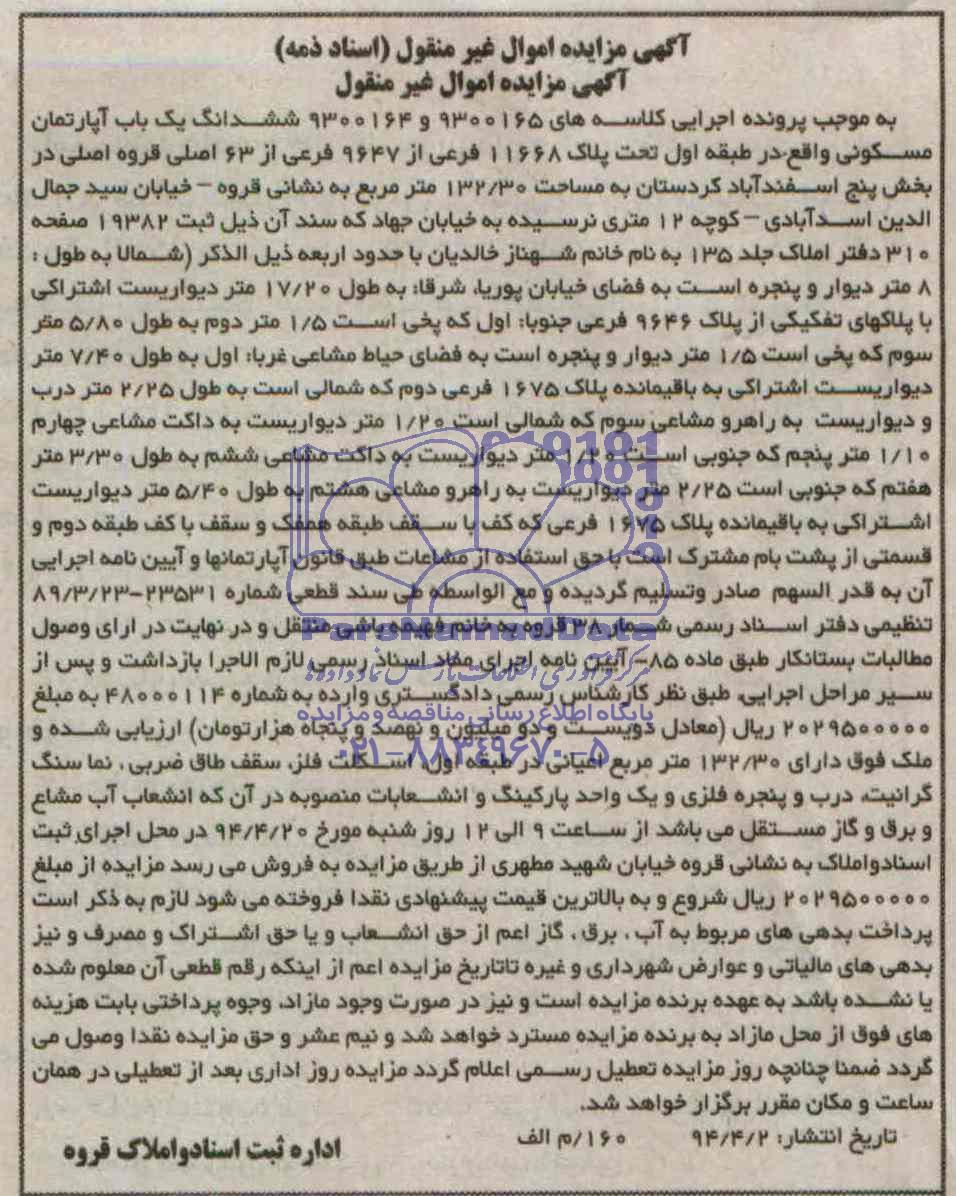 آگهی مزایده اموال غیر منقول (اسناد ذمه)
آگهی مزایده اموال غیر منقول
به موجب پرونده اجرایی کلاسه های ۹۳۰۰۱۶۵ و ۹۳۰۰۱۶۴ ششدانگ یک باب آپارتمان
مسکونی واقع در طبقه اول تحت پلاک ۱۱۶۶۸ فرعی از ۹۶۴۷ فرعی از ۶۳ اصلی قروه اصلی در
بخش پنج اسفندآباد کردستان به مساحت ۱۳۲/۳۰ متر مربع به نشانی قروه – خیابان سید جمال
الدین اسدآبادی – کوچه ۱۲ متری نرسیده به خیابان جهاد که سند آن ذیل ثبت ۱۹۳۸۲ صفحه
۳۱۰ دفتر املاک جلد ۱۳۵ به نام خانم شهناز خالدیان با حدود اربعه ذیل الذکر (شمالا به طول :
۸ متر دیوار و پنجره است به فضای خیابان پوریا، شرقا: به طول ۱۷/۲۰ متر دیواریست اشتراکی
با پلاکهای تفکیکی از پلاک ۹۶۴۶ فرعی جنوبا: اول که پخی است ۱/۵ متر دوم به طول ۵/۸۰ متر
سوم که پخی است ۱/۵ متر دیوار و پنجره است به فضای حیاط مشاعی غربا: اول به طول ۷/۴۰ متر
دیواریست اشتراکی به باقیمانده پلاک ۱۶۷۵ فرعی دوم که شمالی است به طول ۲/۲۵ متر درب
و دیواریست به راهرو مشاعی سوم که شمالی است ۱/۲۰ متر دیواریست به داکت مشاعی چهارم
۱/۱۰ متر پنجم که جنوبی است ۱/۲۰ متر دیواریست به داکت مشاعی ششم به طول ۳/۳۰ متر
هفتم که جنوبی است ۲/۲۵ متر دیواریست به راهرو مشاعی هشتم به طول ۵/۴۰ متر دیواریست
اشتراکی به باقیمانده پلاک ۱۶۷۵ فرعی که کف با سقف طبقه همفک و سقف با کف طبقه دوم و
قسمتی از پشت بام مشترک است با حق استفاده از مشاعات طبق قانون آپارتمانها و آیین نامه اجرایی
آن به قدر السهم صادر وتسلیم گردیده و مع الواسطه طی سند قطعی شماره ۲۳۵۳۱-۸۹/۳/۲۳
تنظیمی دفتر اسناد رسمی شمار ۳۸ قروه به خانم فهیمه باشی منتقل و در نهایت در ارای وصول
مطالبات بستانکار طبق ماده ۸۵- آیین نامه اجرای مفاد اسناد رسمی لازم الاجرا بازداشت و پس از
سیر مراحل اجرایی، طبق نظر کارشناس رسمی دادگستری وارده به شماره ۴۸۰۰۰۱۱۴ به مبلغ
۲۰۲۹۵۰۰۰۰۰ ریال (معادل دویست و دو میلیون و نهصد و پنجاه هزارتومان) ارزیابی شده و
ملک فوق دارای ۱۳۲/۳۰ متر مربع اعیانی در طبقه اول، اسکلت فلز، سقف طاق ضربی، نما سنگ
گرانیت، درب و پنجره فلزی و یک واحد پارکینگ و انشعابات منصوبه در آن که انشعاب آب مشاع
و برق و گاز مستقل می باشد از ساعت ۹ الی ۱۲ روز شنبه مورخ ۹۴/۴/۲۰ در محل اجرای ثبت
اسنادواملاک به نشانی قروه خیابان شهید مطهری از طریق مزایده به فروش می رسد مزایده از مبلغ
۲۰۲۹۵۰۰۰۰۰ ریال شروع و به بالاترین قیمت پیشنهادی نقدا فروخته می شود لازم به ذکر است
پرداخت بدهی های مربوط به آب ، برق ، گاز اعم از حق انشعاب و یا حق اشتراک و مصرف و نیز
بدهی های مالیاتی و عوارض شهرداری و غیره تاتاریخ مزایده اعم از اینکه رقم قطعی آن معلوم شده
یا نشده باشد به عهده برنده مزایده است و نیز در صورت وجود مازاد، وجوه پرداختی بابت هزینه
های فوق از محل مازاد به برنده مزایده مسترد خواهد شد و نیم عشر و حق مزایده نقدا وصول می
گردد ضمنا چنانچه روز مزایده تعطیل رسمی اعلام گردد مزایده روز اداری بعد از تعطیلی در همان
ساعت و مکان مقرر برگزار خواهد شد.
تاریخ انتشار: ۹۴/۴/۲ ۱۶۰/م الف
اداره ثبت اسنادواملاک قروه
ParsNamadData
مرکز فرآوری اطلاعات پارس نماد داده ها
پایگاه اطلاع رسانی مناقصه و مزایده
۰۲۱-۸۸۳۴۹۶۷۰-۵